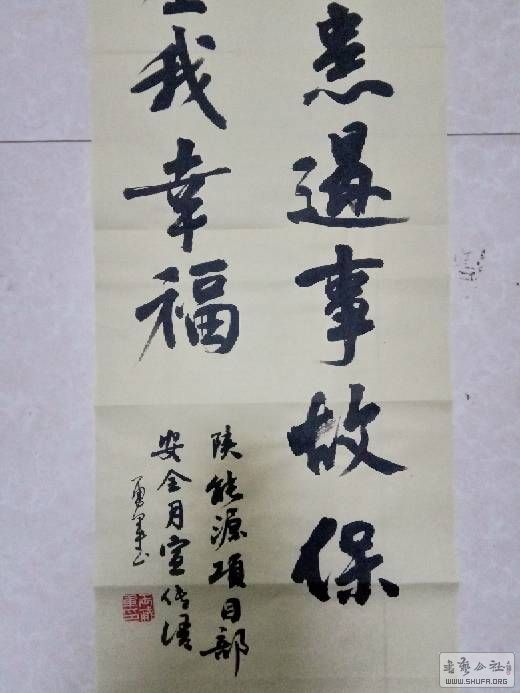 患遏事故保
我幸福
陕能源項目部
安全月宣传语
書藝公社
WWW.SHUFA.ORG